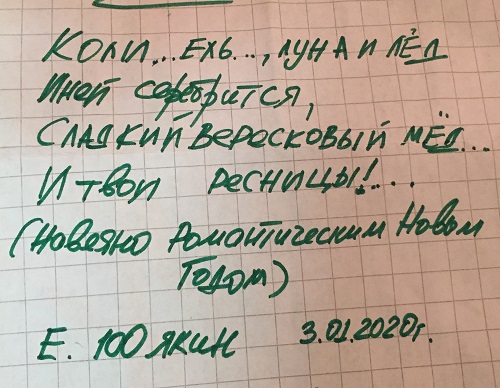 Коли...ехь..., луна и лёд
Иней серебрится,
Сладкий вересковый мёд...
И твои ресницы!...
(Навеяно Романтическим Новым
Годом)
Е. 100якин 3.01.2020г.